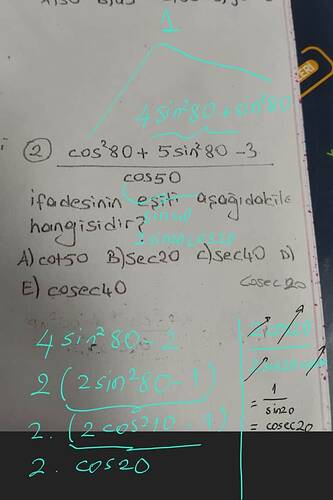 1
4sin²80 + sin²80
② cos²80 + 5sin²80 - 3
cos50
ifadesinin eşiti aşağıdakile
hangisidir?
sin40
2sin20cos20
A) cot50 B) sec20 C) sec40 D)
cosec20
E) cosec40
4sin²80 - 2
2(2sin²80 - 1)
2.(2cos²10 - 1)
2. cos20
= 1
sin20
= cosec20